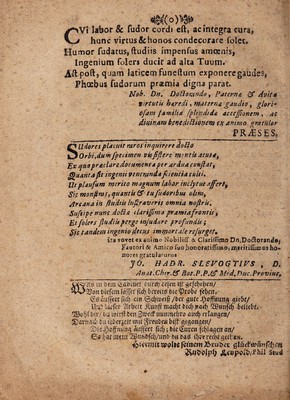 (o)
CUi labor & sudor cordi est, ac integra cura,
hunc virtus & honos condecorare solet.
Humor sudatus, studiis impensus amœnis,
Ingenium solers ducit ad alta Tuum.
Ast post, quam laticem funestum exponere gaudes,
Phœbus sudorum præmia digna parat.
Nob. Dn. Doctorando, Paternæ & Avitæ
virtutis hæredi, materna gaudio, glorio-
sæ familiæ splendida accessionem, ac
divinam benedictionem ex animo gratulor
PRÆSES,
SUdores placuit tuos inquirere docto
Orbi, dum specimen vis sistere mentis acuta,
Ex quo præclare documenta per ardua constat,
Quanta sit ingenii veneranda scientia tui.
Ut plausum merito magnum labor inclytus affert,
Sic monstras, quantis & tu sudoribus olim,
Arcana in studiis lustraveris omnia nostris,
Suscipe nunc docta clarissima præmia frontis,
Et solers studii perge insudare profundis;
Sic tandem ingenio decus immortale resurget.
ita vovet ex animo Nobiliss. & Clarissimo Dn. Doctorando,
Fautori & Amico suo honoratissimo, meritissimos ho-
nores gratulaturus
JO. HADR. SLEVOGTIUS, D.
Anat. Chir. & Bot. P. P. & Med. Duc. Provinc.
WAs in dem Cabinet eurer
Von diesem lässet sich bereits die Probe sehen.
Es äussert sich ein Schweiß / der gute Hoffnung giebt /
Und unser Arbeit Kunst macht doch nach Wunsch beliebt.
Wohl der / da wirst den Zweck nunmehro auch erlangen /
Darnach du iederzeit mit Freuden bist gegangen /
Die Hoffnung äussert sich; die Curen schlagen an /
So hat mein Windisch / und du das ihre recht gethan.
Hiermit wolte seinen Bruder glückwünschen
Rudolph Leupold / Phil. Stud.